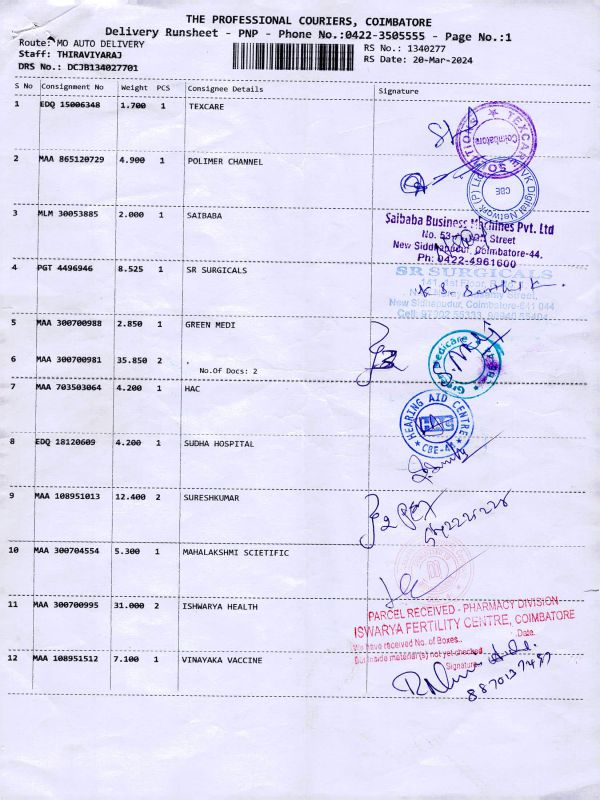 THE PROFESSIONAL COURIERS, COIMBATORE
Delivery Runsheet - PNP - Phone No.:0422-3505555 - Page No.:1
Route: MO AUTO DELIVERY
RS No.: 1340277
Staff: THIRAVIYARAJ
RS Date: 20-Mar-2024
DRS No.: DCJB134027701
S No Consignment No Weight PCS Consignee Details Signature
1 EDQ 15006348 1.700 1 TEXCARE
TEXCARE SOLUTIONS
Coimbatore
2 MAA 865120729 4.900 1 POLIMER CHANNEL
VK Digital Network (P) Ltd
CBE
3 MLM 30053885 2.000 1 SAIBABA
Saibaba Business Machines Pvt. Ltd
No. 53 Street
New Siddhapudur, Coimbatore-44.
Ph: 0422-4961600
4 PGT 4496946 8.525 1 SR SURGICALS
SR SURGICALS
141, 1st Floor
Street,
New Siddhapudur, Coimbatore-641 044
Cell:
5 MAA 300700988 2.850 1 GREEN MEDI
Green Medicare
6 MAA 300700981 35.850 2 .
No.Of Docs: 2
7 MAA 703503064 4.200 1 HAC
HEARING AID CENTRE
CBE-44
8 EDQ 18120609 4.200 1 SUDHA HOSPITAL
9 MAA 108951013 12.400 2 SURESHKUMAR
10 MAA 300704554 5.300 1 MAHALAKSHMI SCIETIFIC
11 MAA 300700995 31.000 2 ISHWARYA HEALTH
PARCEL RECEIVED - PHARMACY DIVISION
ISWARYA FERTILITY CENTRE, COIMBATORE
We have received No. of Boxes.. Date.
But inside material(s) not yet checked
Signature
12 MAA 108951512 7.100 1 VINAYAKA VACCINE
8870137487